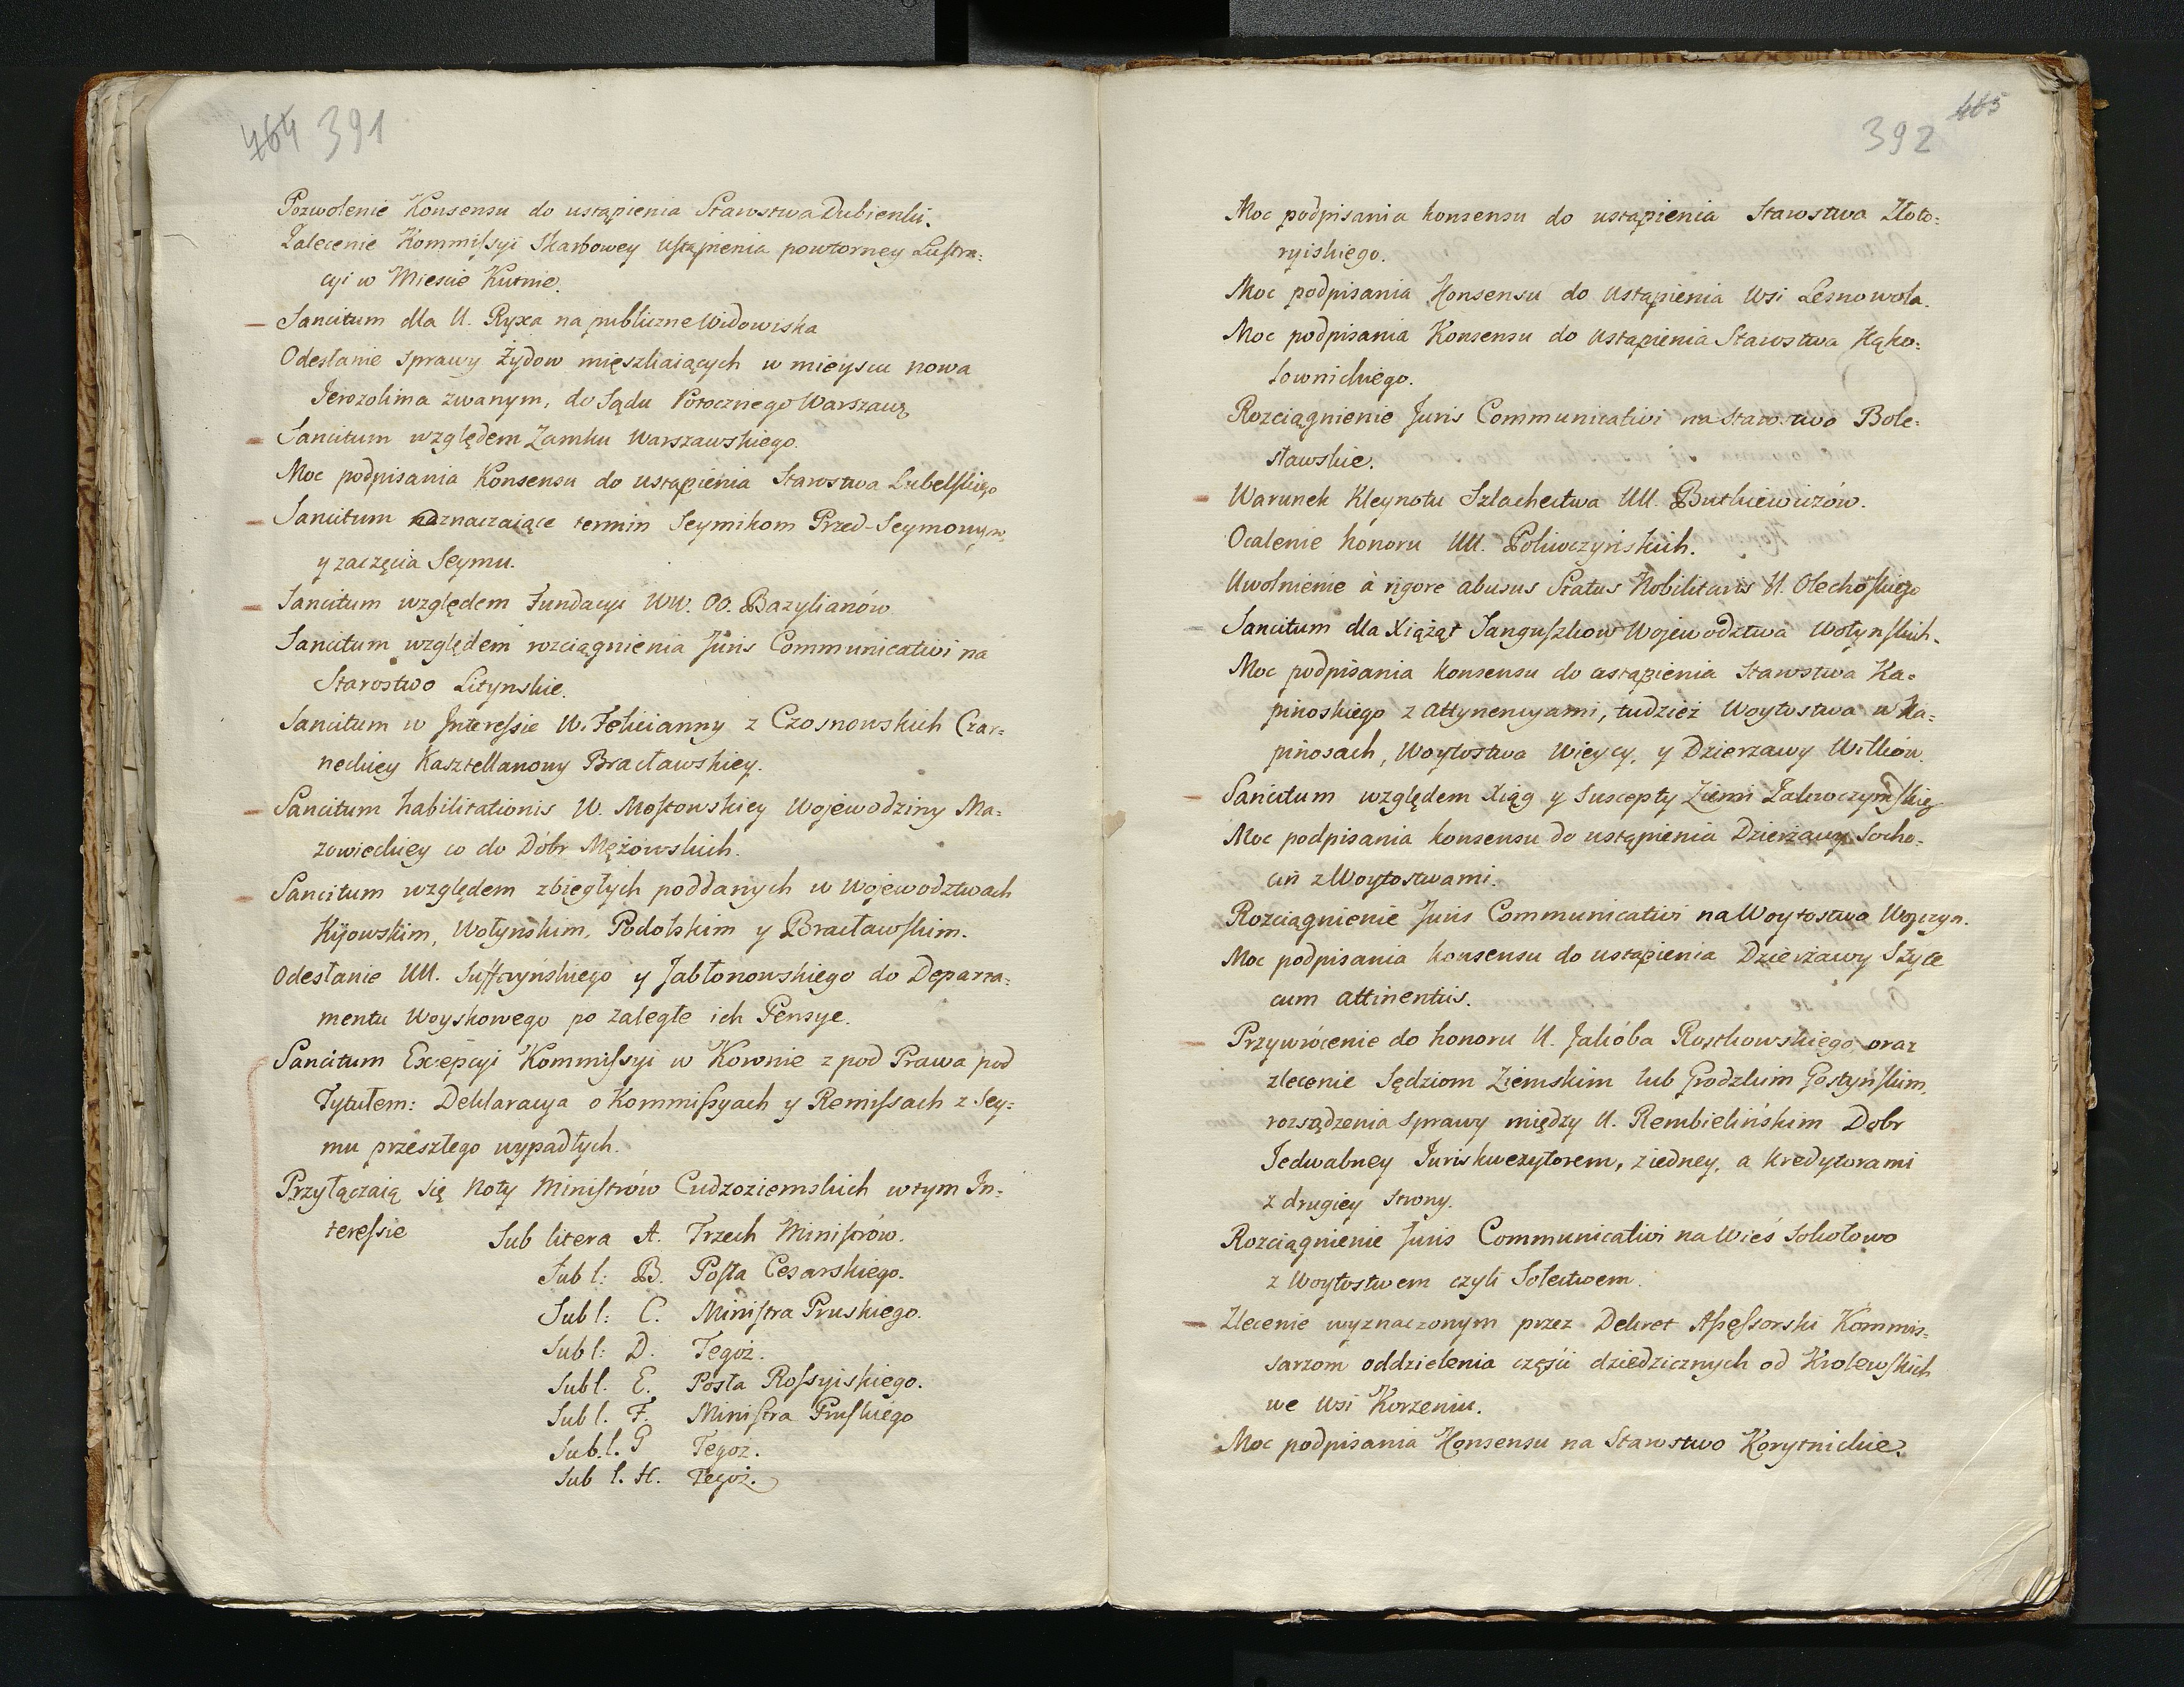 464 391
Pozwolenie Konsensu do ustąpienia Starostwa Dubienki.
Zalecenie Kommissyi Skarbowey ustąpienia powtorney Lustra=
cyi w Miescie Kutnie.
— Sancitum dla U. Ryxa na publiczne Widowiska
Odesłanie sprawy Żydow mięszkaiących w mieyscu nowa
Jerozolima zwanym, do Sądu Potocznego Warszaws
— Sancitum względem Zamku Warszawskiego.
Moc podpisania Konsensu do ustąpienia Starostwa Lubelskiego
— Sancitum naznaczaiące termin Seymikom Przed-Seymowym,
y zaczęcia Seymu.
— Sancitum względem Fundacyi WW. OO. Bazylianów.
Sancitum względem rozciągnienia Juris Communicativi na
Starostwo Litynskie.
Sancitum w Interessie W. Felicianny z Czosnowskich Czar=
neckiey Kasztellanowy Bracławskiey.
— Sancitum habilitationis W. Mostowskiey Wojewodziny Ma=
zowieckiey co do Dóbr Mężowskich.
— Sancitum względem zbiegłych poddanych w Wojewodztwach
Kijowskim, Wołynskim, Podolskim y Bracławskim.
Odesłanie UU. Suffczyńskiego y Jabłonowskiego do Deparra=
mentu Woyskowego po zaległe ich Pensye.
Sancitum Excepcyi Kommissyi w Kownie z pod Prawa pod
Tytułem: Deklaracya o Kommissyach y Remissach z Sey=
mu przeszłego wypadłych.
Przyłączaią się Noty Ministrów Cudzoziemskich w tym In=
teressie Sub litera A. Trzech Ministrów.
Sub l: B. Posła Cesarskiego.
Sub l: C. Ministra Pruskiego.
Sub l: D. Tegoż.
Sub l. E. Posła Rossyiskiego.
Sub l. F. Ministra Pruskiego
Sub. l. G Tegoż.
Sub l. H. Tegoż.
465
392
Moc podpisania konsensu do ustąpienia Starostwa Złoto=
ryiskiego.
Moc podpisania Konsensu do Ustąpienia Wsi Lesnowola.
Moc podpisania Konsensu do Ustąpienia Starostwa Hąko=
lownickiego.
Rozciągnienie Juris Communicativi na Starostwo Bole=
sławskie.
— Warunek Kleynotu Szlachectwa UU. Butkiewiczów.
Ocalenie honoru UU. Poliwczyńskich.
Uwolnienie à rigore abusus Status Nobilitaris U. Olechoskiego
— Sancitum dla Xiążąt Sanguszkow Wojewodztwa Wołynskich.
Moc podpisania konsensu do ustąpienia Starostwa Ka=
pinoskiego z attynencyami, tudzież Woytostwa w Ka=
pinosach, Woytostwa Wieycy, y Dzierzawy Witków.
— Sancitum względem Xiąg y Suscepty Ziemi Zakroczymskiey
Moc podpisania konsensu do ustąpienia Dzierżawy Socho=
cin z Woytostwami.
Rozciągnienie Juris Communicativi na Woytostwo Wojczyn.
Moc podpisania konsensu do ustąpienia Dzierżawy Szyce
cum attinentiis.
— Przywrócenie do honoru U. Jakóba Rostkowskiego oraz
zlecenie Sędziom Ziemskim lub Grodzkim Gostynskim,
rozsądzenia sprawy między U. Rembielińskim Dobr
Jedwabney Juriskwezytorem, z iedney, a kredytorami
z drugiey strony.
Rozciągnienie Juris Communicativi na Wieś Sokołowo
z Woytostwem czyli Sołectwem.
— Zlecenie wyznaczonym przez Dekret Assessorski Kommis=
sarzom oddzielenia częśći dziedzicznych od Krolewskich
we Wsi Korzeniu.
Moc podpisania Konsensu na Starostwo Korytnickie.